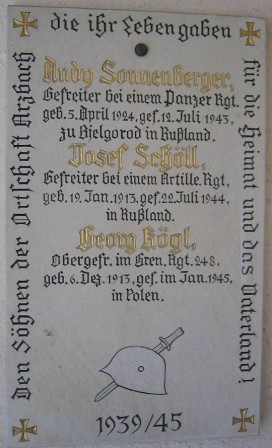 Den Söhnen der Ortschaft Atzbach
die ihr Leben gaben
für die Heimat und das Vaterland!
Andy Sonnenberger,
Gefreiter bei einem Panzer Rgt.
geb. 5. April 1924, gef. 12. Juli 1943,
zu Bjelgorod in Rußland.
Josef Schöll,
Gefreiter bei einem Artille. Rgt,
geb. 19. Jan. 1913, gef. 22. Juli 1944,
in Rußland.
Georg Kögl,
Obergefr. im Gren. Rgt. 248,
geb. 6. Dez. 1913, gef. im Jan. 1945,
in Polen.
1939/45